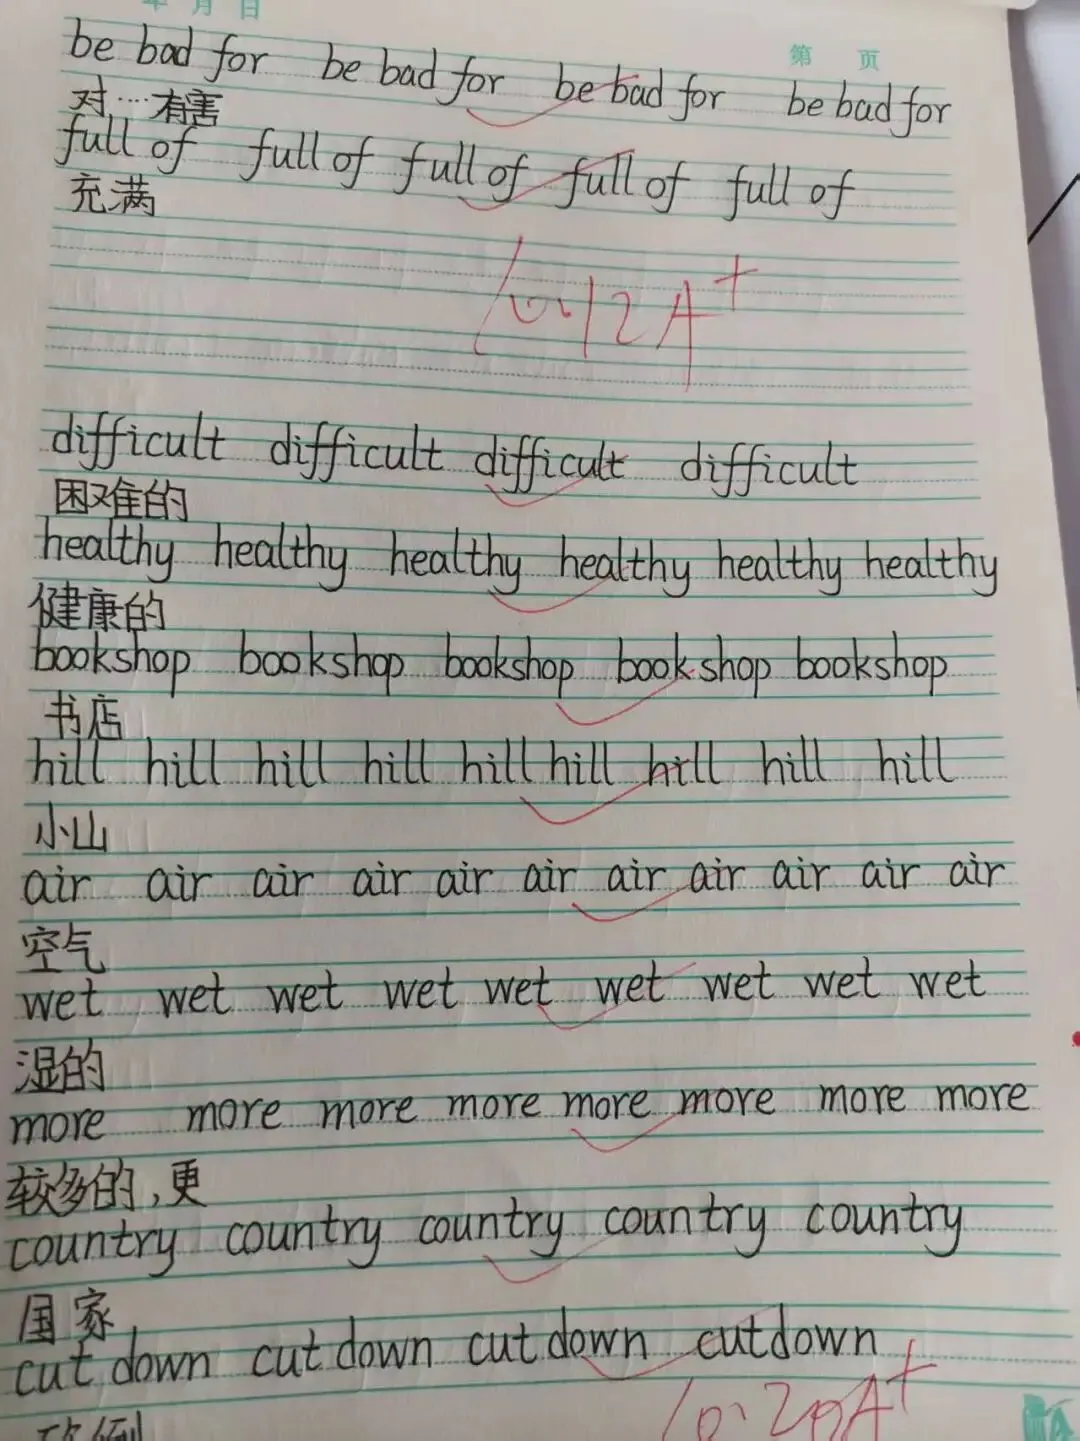 年 月 日
第 页
be bad for be bad for be bad for be bad for
对····有害
full of full of full of full of full of
充满
10.12 A+
difficult difficult difficult difficult
困难的
healthy healthy healthy healthy healthy healthy
健康的
bookshop bookshop bookshop bookshop bookshop
书店
hill hill hill hill hill hill hill hill hill
小山
air air air air air air air air air air air
空气
wet wet wet wet wet wet wet wet wet
湿的
more more more more more more more more
较多的,更
country country country country country
国家
cut down cut down cut down cutdown
砍倒
10.20 A+